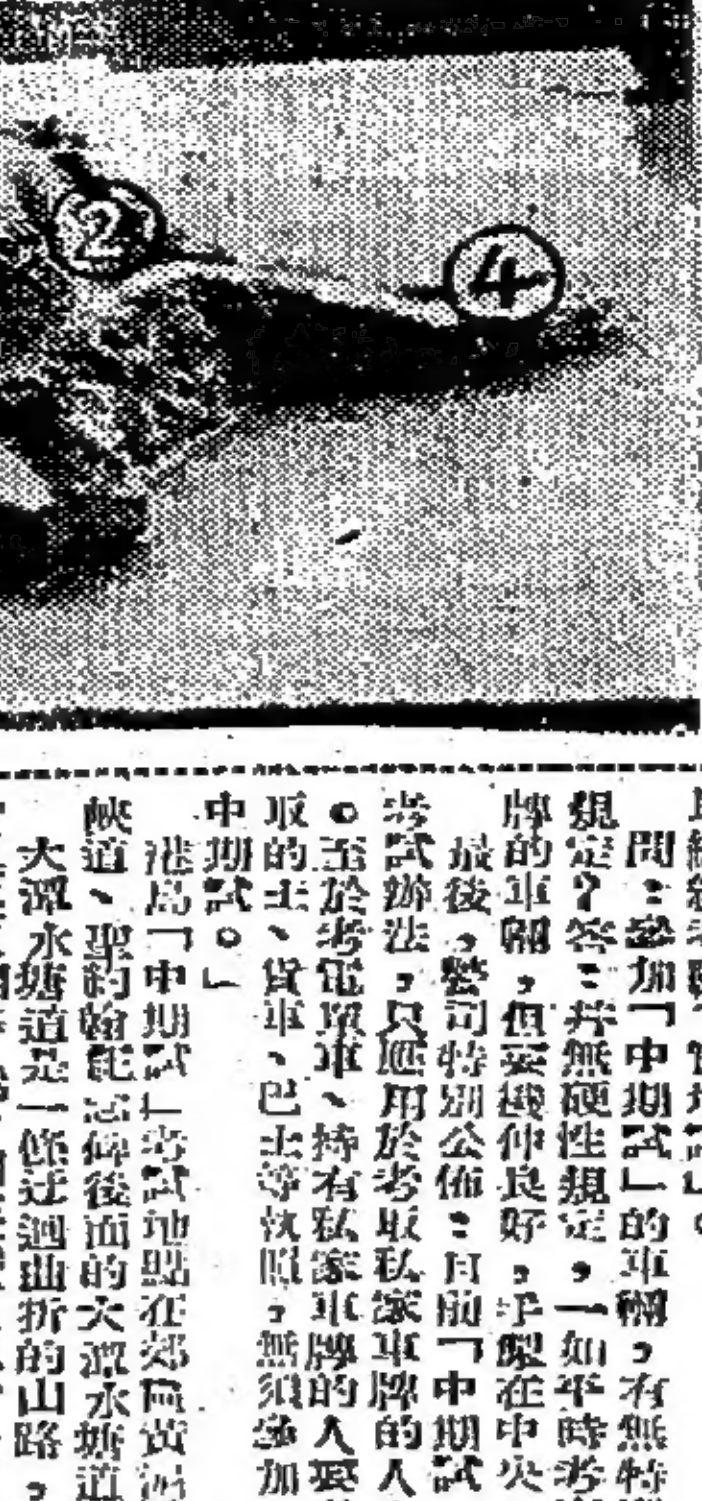 2
4
問：參加「中期試」的車輛，有無特
規定？答：并無硬性規定，一如平時考
牌的車輛，但要機件良好，手掣在中央
最後，警司特別公佈：目前「中期試
考試辦法，只應用於考取私家車牌的人
。至於考電單車、持有私家車牌的人要
取的士、貨車、巴士等執照，無須參加
中期試。」
港島「中期試」考試地點在郊區黃泥
峽道、聖約翰紀念碑後面的大潭水塘道
大潭水塘道是一條迂迴曲折的山路，